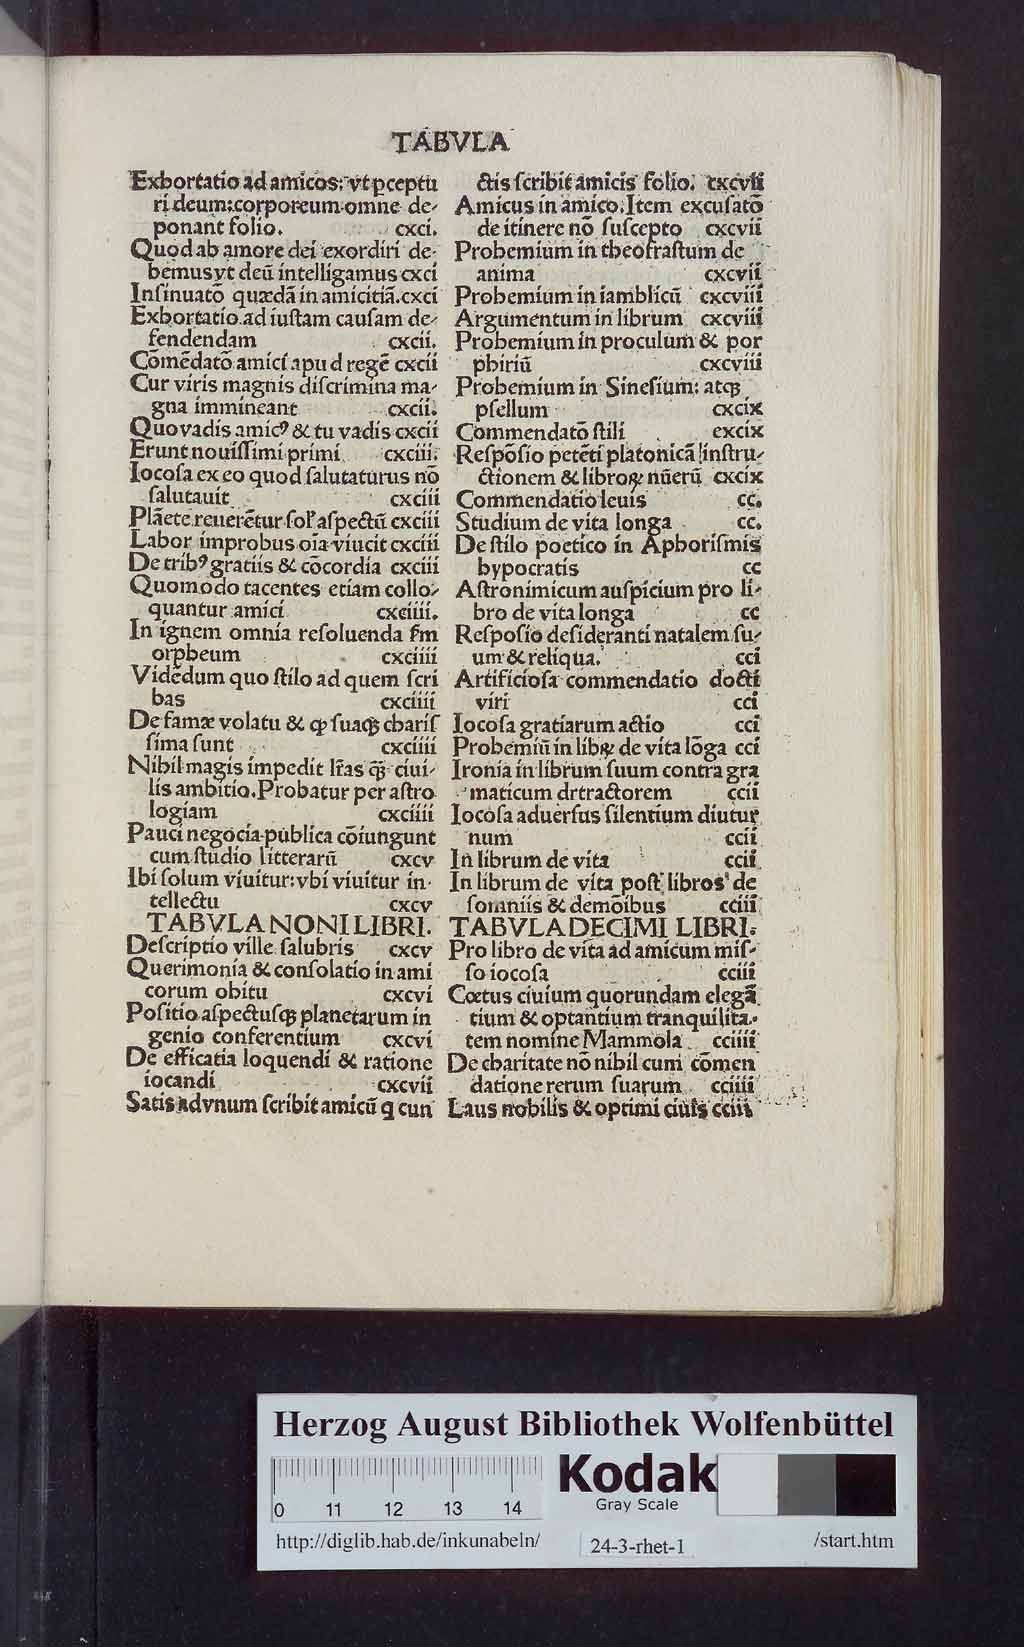 TABVLA
Exhortatio ad amicos: vt pceptu
ri deum: corporeum omne de-
ponant folio. cxci.
Quod ab amore dei exordiri de-
bemus vt deū intelligamus cxci
Inſinuatō quædā in amicitiā. cxci
Exhortatio ad iuſtam cauſam de-
fendendam cxcii.
Cōmēdatō amici apud regē cxcii
Cur viris magnis diſcrimina ma-
gna immineant cxcii.
Quo vadis amicꝰ & tu vadis cxcii
Erunt nouiſſimi primi cxciii.
Iocoſa ex eo quod ſalutaturus nō
ſalutauit cxciii
Plāete reuerētur ſol' aſpectū cxciii
Labor improbus oīa viucit cxciii
De tribꝰ gratiis & cōcordia cxciii
Quomodo tacentes etiam collo-
quantur amici cxciiii.
In ignem omnia reſoluenda ſm̄
orpheum cxciiii
Vidēdum quo ſtilo ad quem ſcri
bas cxciiii
De famæ volatu & ꝙ ſuaꝗ chariſ
ſima ſunt cxciiii
Nihil magis impedit lr̄as ꝗ̄ ciui-
lis ambitio. Probatur per aſtro
logiam cxciiii
Pauci negocia publica cōiungunt
cum ſtudio litterarū cxcv
Ibi ſolum viuitur: vbi viuitur in-
tellectu cxcv
TABVLA NONI LIBRI.
Deſcriptio ville ſalubris cxcv
Querimonia & conſolatio in ami
corum obitu cxcvi
Poſitio aſpectuſꝗ planetarum in
genio conferentium cxcvi
De efficatia loquendi & ratione
iocandi cxcvii
Satis ad vnum ſcribit amicū q cun
ctis ſcribit amicis folio. cxcvii
Amicus in amico. Item excuſatō
de itinere nō ſuſcepto cxcvii
Prohemium in theofraſtum de
anima cxcvii
Prohemium in iamblicū cxcviii
Argumentum in librum cxcviii
Prohemium in proculum & por
phiriū cxcviii
Prohemium in Sineſium: atꝗ
pſellum cxcix
Commendatō ſtili excix
Reſpōſio petēti platonicā inſtru-
ctionem & libroꝝ nūerū cxcix
Commendatio leuis cc.
Studium de vita longa cc.
De ſtilo poetico in Aphoriſmis
hypocratis cc
Aſtronimicum auſpicium pro li-
bro de vita longa cc
Reſpoſio deſideranti natalem ſu-
um & reliqua. cci
Artificioſa commendatio docti
viri cci
Iocoſa gratiarum actio cci
Prohemiū in libꝝ de vita lōga cci
Ironia in librum ſuum contra gra
maticum drtractorem ccii
Iocoſa aduerſus ſilentium diutur
num ccii
In librum de vita ccii
In librum de vita poſt libros de
ſomniis & demōibus cciii
TABVLA DECIMI LIBRI.
Pro libro de vita ad amicum miſ-
ſo iocoſa cciii
Cœtus ciuium quorundam elegā
tium & optantium tranquilita-
tem nomine Mammola cciiii
De charitate nō nihil cum cōmen
datione rerum ſuarum cciiii
Laus nobilis & optimi ciuis cciii
Herzog August Bibliothek Wolfenbüttel
0 11 12 13 14
Kodak
Gray Scale
http://diglib.hab.de/inkunabeln/ 24-3-rhet-1 /start.htm